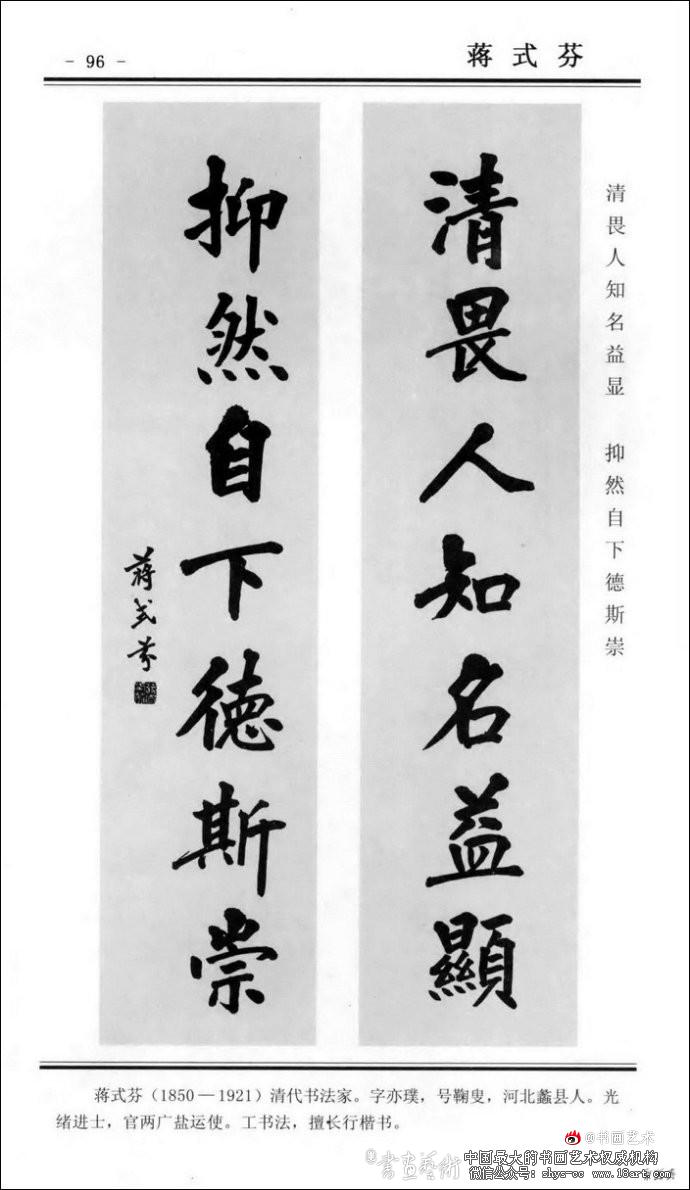 - 96 -
蒋式芬
清畏人知名益显 抑然自下德斯崇
清畏人知名益顯
抑然自下德斯崇
蒋式芬
蒋式芬（1850－1921）清代书法家。字亦璞，号鞠叟，河北蠡县人。光
绪进士，官两广盐运使。工书法，擅长行楷书。
@书画艺术
中国最大的书画艺术权威机构
@書画藝術
微信公众号：shys-cc www.18art.com